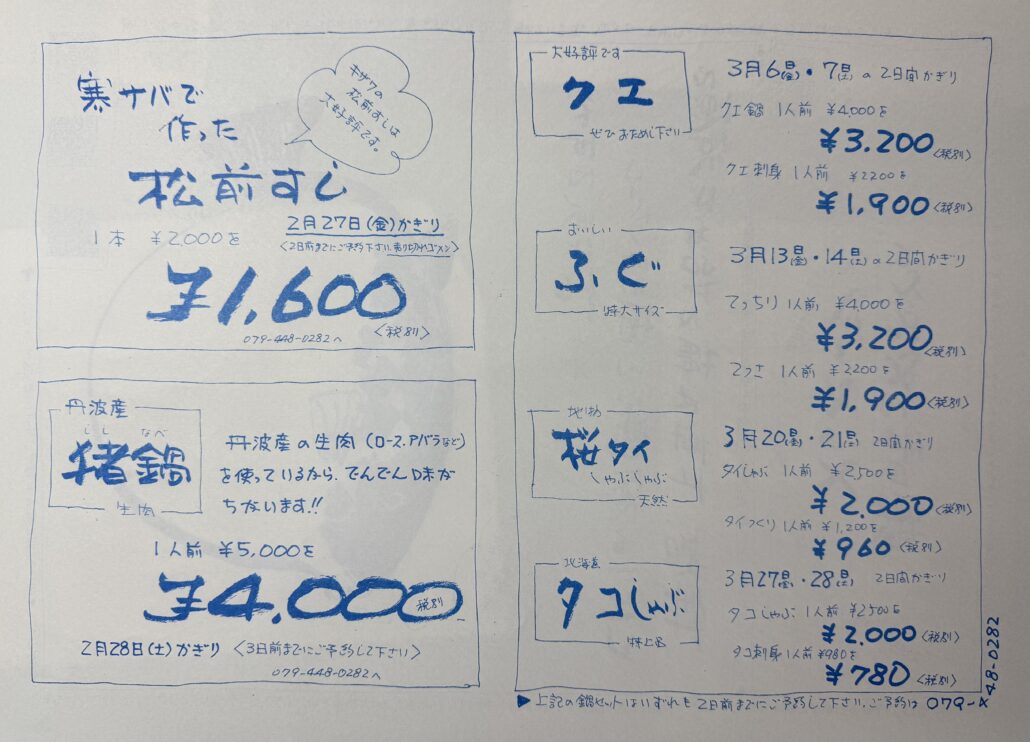 寒サバで
作った
松前すし
キザワの
松前すしは
大好評です。
2月27日(金)かぎり
1本 ¥2,000を
〈2日前までにご予約下さい.売り切れゴメン〉
¥1,600
〈税別〉
079-448-0282へ
丹波産
しし なべ
猪鍋
生肉
丹波産の生肉(ロース.アバラなど)
を使っているから、でんでん味が
ちがいます!!
1人前 ¥5,000を
¥4.000 税別
2月28日(土)かぎり 〈3日前までにご予約して下さい〉
079-448-0282へ
大好評です
クエ
ぜひおためし下さい
3月6日(金)・7日(土)の2日間かぎり
クエ鍋 1人前 ¥4,000を
¥3.200 〈税別〉
クエ刺身 1人前 ¥2200を
¥1,900 〈税別〉
おいしい
ふぐ
特大サイズ
3月13日(金)・14日(土)の2日間かぎり
てっちり 1人前 ¥4,000を
¥3,200 〈税別〉
てっさ 1人前 ¥2,200を
¥1,900 〈税別〉
地物
桜タイ
しゃぶしゃぶ
天然
3月20日(金)・21日(土) 2日間かぎり
タイしゃぶ 1人前 ¥2,500を
¥2.000 〈税別〉
タイつくり 1人前 ¥1,200を
¥960 〈税別〉
北海産
タコしゃぶ
特上品
3月27日(金)・28日(土) 2日間かぎり
タコしゃぶ 1人前 ¥2500を
¥2.000 〈税別〉
タコ刺身 1人前 ¥980を
¥780 〈税別〉
▶上記の鍋セットはいずれも2日前までにご予約して下さい.ご予約は 079-448-0282